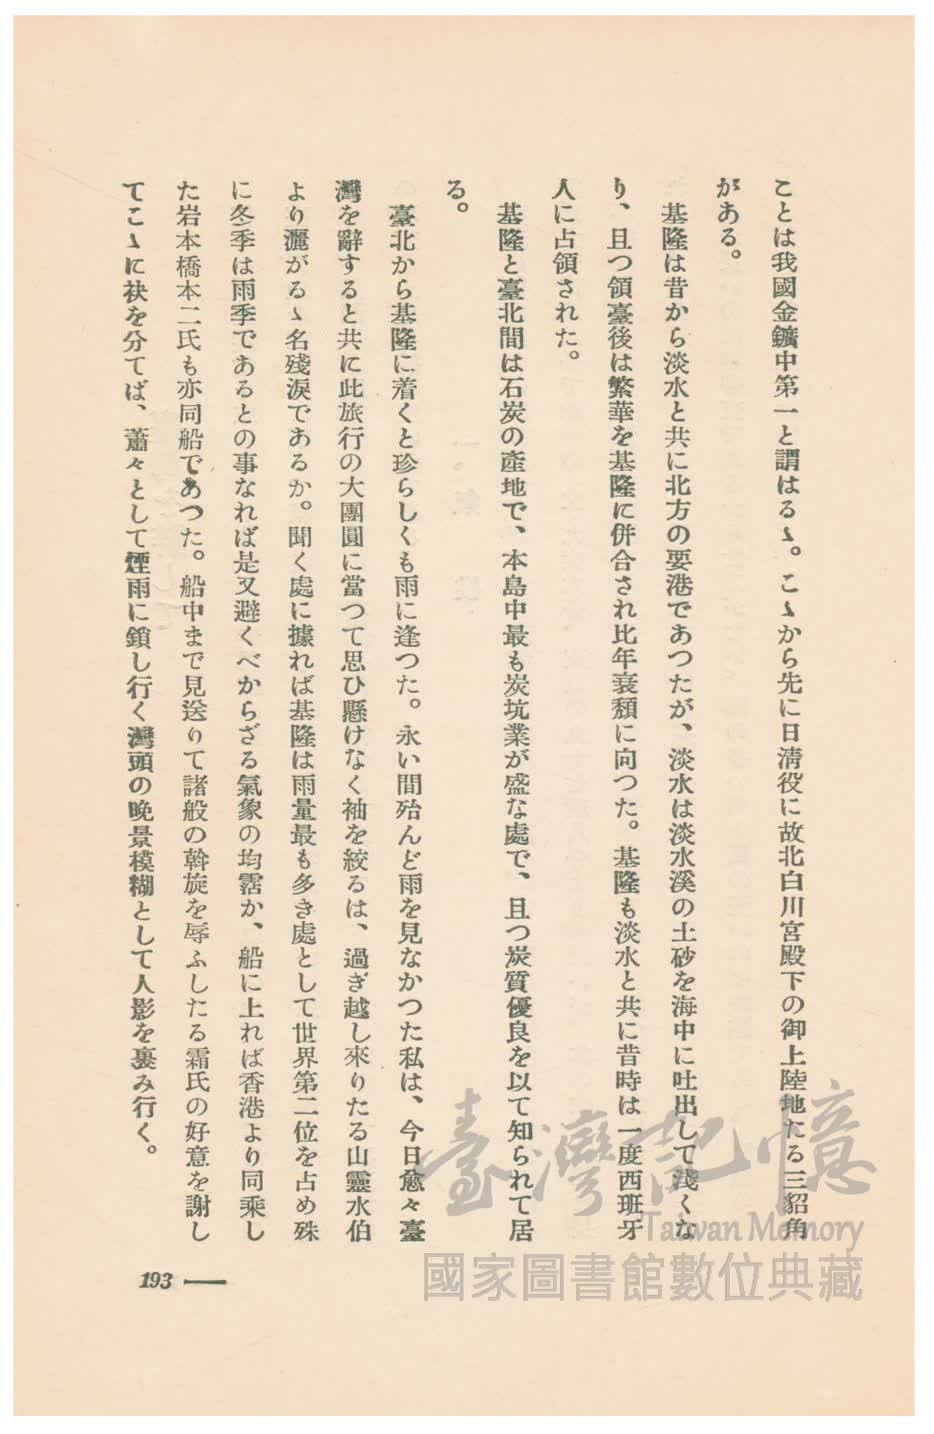 ことは我國金鑛中第一と謂はるゝ。こゝから先に日淸役に故北白川宮殿下の御上陸地たる三貂角
がある。
基隆は昔から淡水と共に北方の要港であつたが、淡水は淡水溪の土砂を海中に吐出して淺くな
り、且つ領臺後は繁華を基隆に併合され比年衰頽に向つた。基隆も淡水と共に昔時は一度西班牙
人に占領された。
基隆と臺北間は石炭の產地で、本島中最も炭坑業が盛な處で、且つ炭質優良を以て知られて居
る。
臺北から基隆に着くと珍らしくも雨に逢つた。永い間殆んど雨を見なかつた私は、今日愈々臺
灣を辭すると共に此旅行の大團圓に當つて思ひ懸けなく袖を絞るは、過ぎ越し來りたる山靈水伯
より灑がるゝ名殘淚であるか。聞く處に據れば基隆は雨量最も多き處として世界第二位を占め殊
に冬季は雨季であるとの事なれば是又避くべからざる氣象の均霑か、船に上れば香港より同乘し
た岩本橋本二氏も亦同船であつた。船中まで見送りて諸般の斡旋を辱ふしたる霜氏の好意を謝し
てこゝに袂を分てば、蕭々として煙雨に鎖し行く灣頭の晩景模糊として人影を裹み行く。
193
臺灣記憶
Taiwan Memory
國家圖書館數位典藏